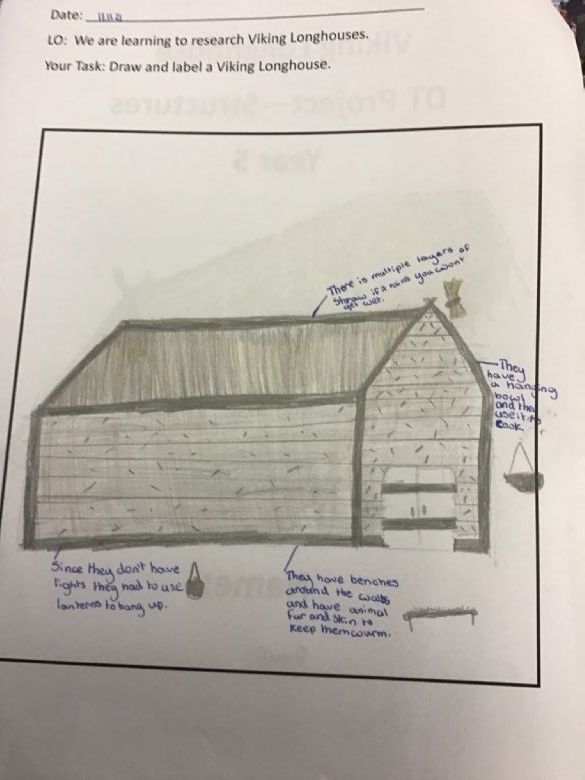 Date: 11.11.21
LO: We are learning to research Viking Longhouses.
Your Task: Draw and label a Viking Longhouse.
DT Project—Structures
Year 5
There is multiple layers of
Straw if it rains you wont
get wet.
They
have
a hanging
bowl
and they
use it to
cook
Since they don't have
lights they had to use
lanterns to hang up.
They have benches
around the walls
and have animal
fur and skin to
keep them warm.